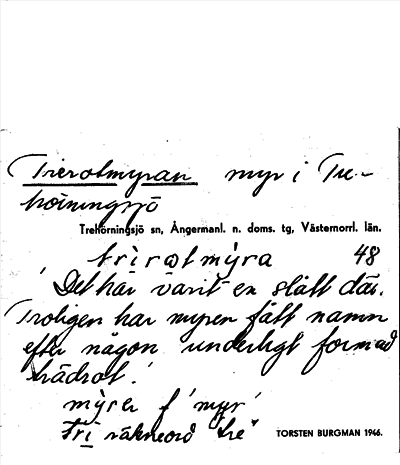 Trerotmyran myr i Tre-
hörningsjö
Trehörningsjö sn, Ångermanl. n. doms. tg, Västernorrl. län.
trìrωtmỳra 48
'Det har varit en slått där.
Troligen har myren fått namn
efter någon underligt formad
trädrot.'
mỳrer f 'myr'
trì räkneord "tre"
TORSTEN BURGMAN 1946.